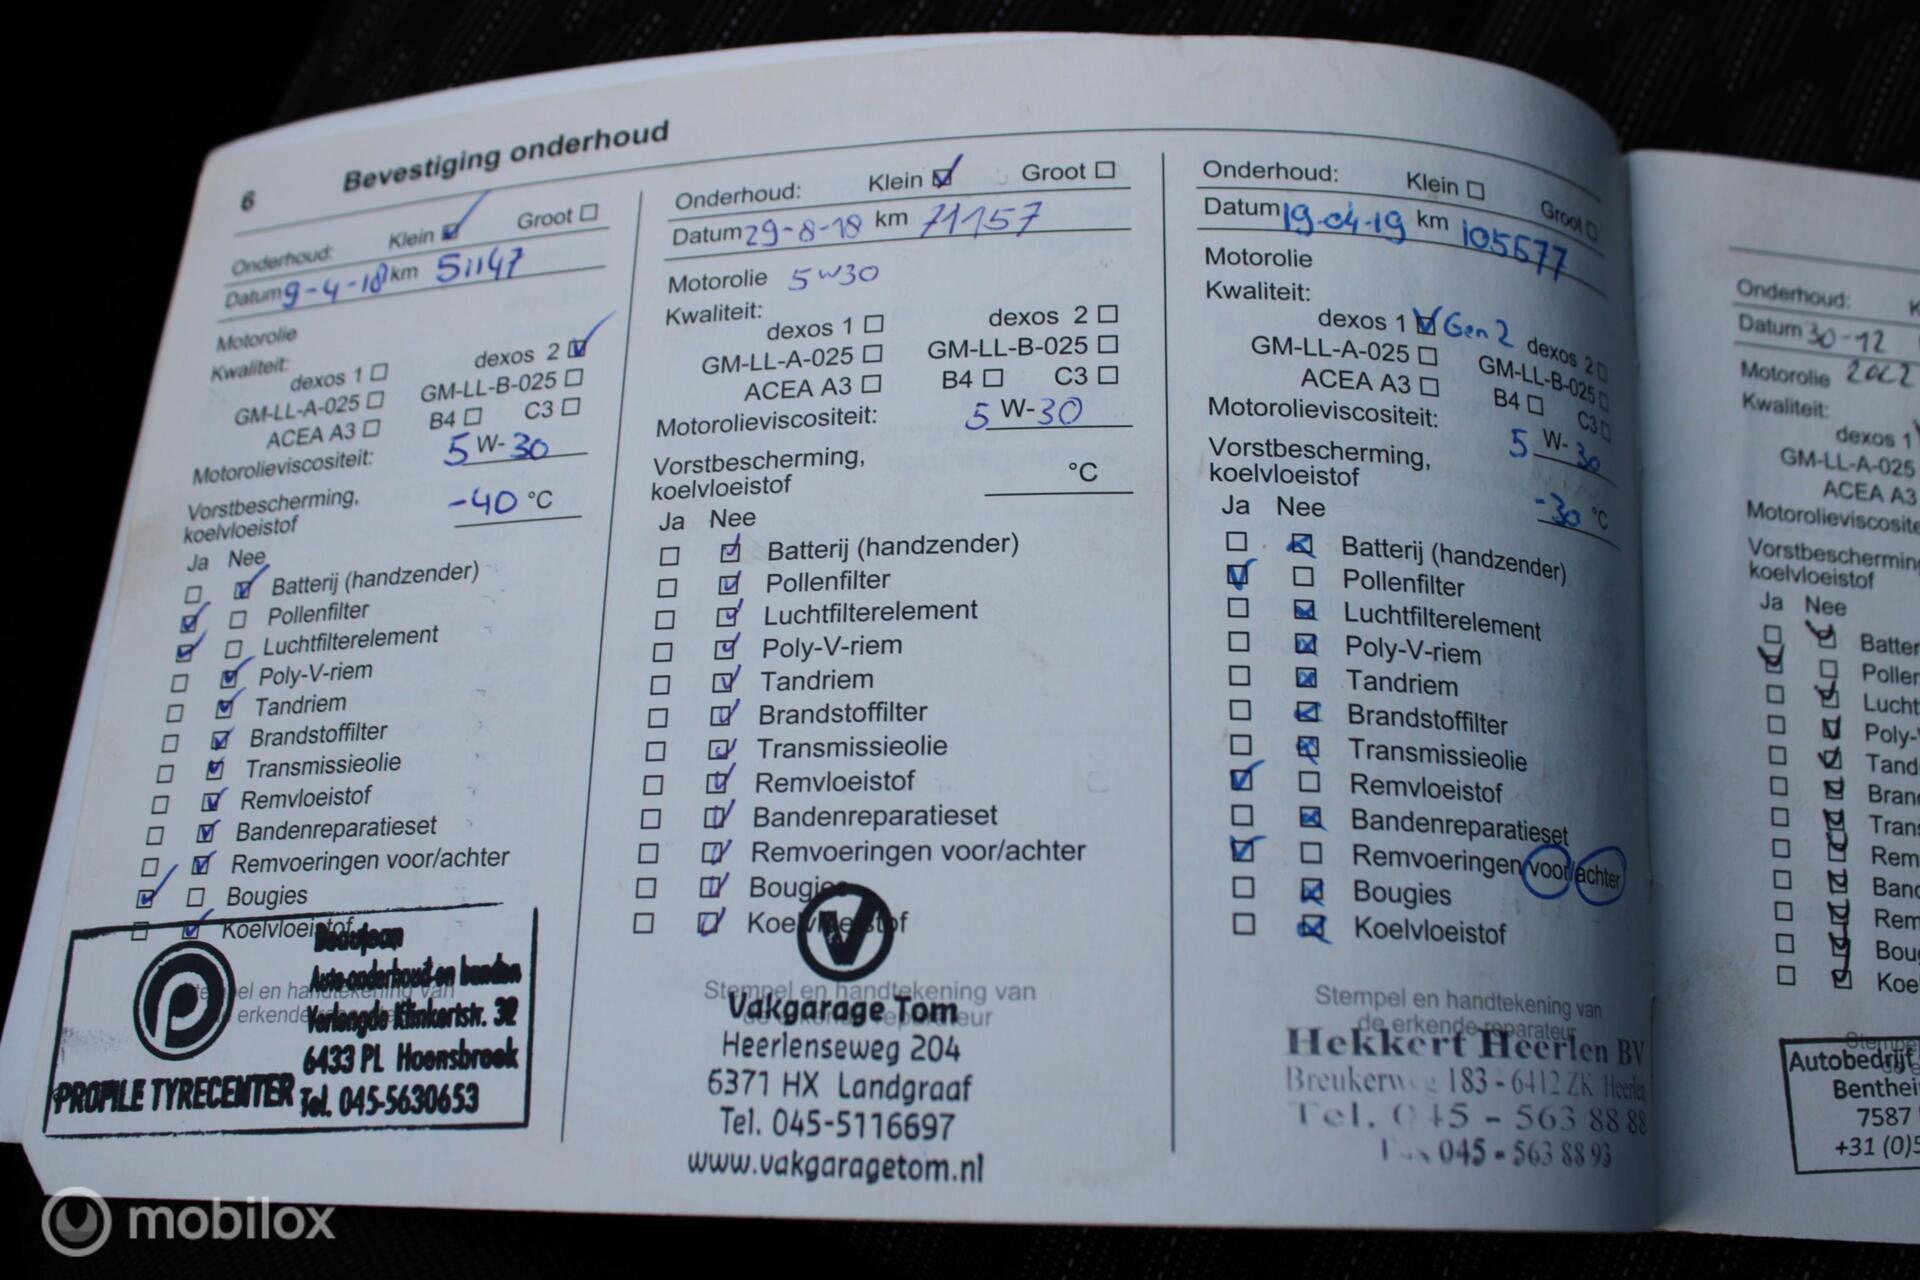 6 Bevestiging onderhoud
Onderhoud: Klein Groot
Datum 9-4-18 km 51147
Motorolie
Kwaliteit:
dexos 1 dexos 2
GM-LL-A-025 GM-LL-B-025
ACEA A3 B4 C3
Motorolieviscositeit: 5 W-30
Vorstbescherming,
koelvloeistof -40 °C
Ja Nee
Batterij (handzender)
Pollenfilter
Luchtfilterelement
Poly-V-riem
Tandriem
Brandstoffilter
Transmissieolie
Remvloeistof
Bandenreparatieset
Remvoeringen voor/achter
Bougies
Koelvloeistof
Beaujean
Auto onderhoud en banden
Verlengde Klinkertstr. 32
6433 PL Hoensbroek
PROFILE TYRECENTER Tel. 045-5630653
Onderhoud: Klein Groot
Datum 29-8-18 km 71157
Motorolie 5w30
Kwaliteit:
dexos 1 dexos 2
GM-LL-A-025 GM-LL-B-025
ACEA A3 B4 C3
Motorolieviscositeit: 5 W-30
Vorstbescherming,
koelvloeistof °C
Ja Nee
Batterij (handzender)
Pollenfilter
Luchtfilterelement
Poly-V-riem
Tandriem
Brandstoffilter
Transmissieolie
Remvloeistof
Bandenreparatieset
Remvoeringen voor/achter
Bougies
Koelvloeistof
Stempel en handtekening van
de erkende reparateur
Vakgarage Tom
Heerlenseweg 204
6371 HX Landgraaf
Tel. 045-5116697
www.vakgaragetom.nl
Onderhoud: Klein Groot
Datum 19-04-19 km 105677
Motorolie
Kwaliteit:
dexos 1 Gen 2 dexos 2
GM-LL-A-025 GM-LL-B-025
ACEA A3 B4 C3
Motorolieviscositeit: 5 W-30
Vorstbescherming,
koelvloeistof -30 °C
Ja Nee
Batterij (handzender)
Pollenfilter
Luchtfilterelement
Poly-V-riem
Tandriem
Brandstoffilter
Transmissieolie
Remvloeistof
Bandenreparatieset
Remvoeringen voor/achter
Bougies
Koelvloeistof
Stempel en handtekening van
de erkende reparateur
Hekkert Heerlen BV
Breukerweg 183 - 6412 ZK Heerlen
Tel. 045 - 563 88 88
Fax 045 - 563 88 93
Onderhoud: K
Datum 30-12
Motorolie
Kwaliteit:
dexos 1
GM-LL-A-025
ACEA A3
Motorolieviscosite
Vorstbescherming
koelvloeistof
Ja Nee
Batter
Pollen
Lucht
Poly-V
Tand
Brand
Trans
Rem
Band
Rem
Boug
Koel
Autobedrijf
Benthei
7587
+31 (0)5
mobilox